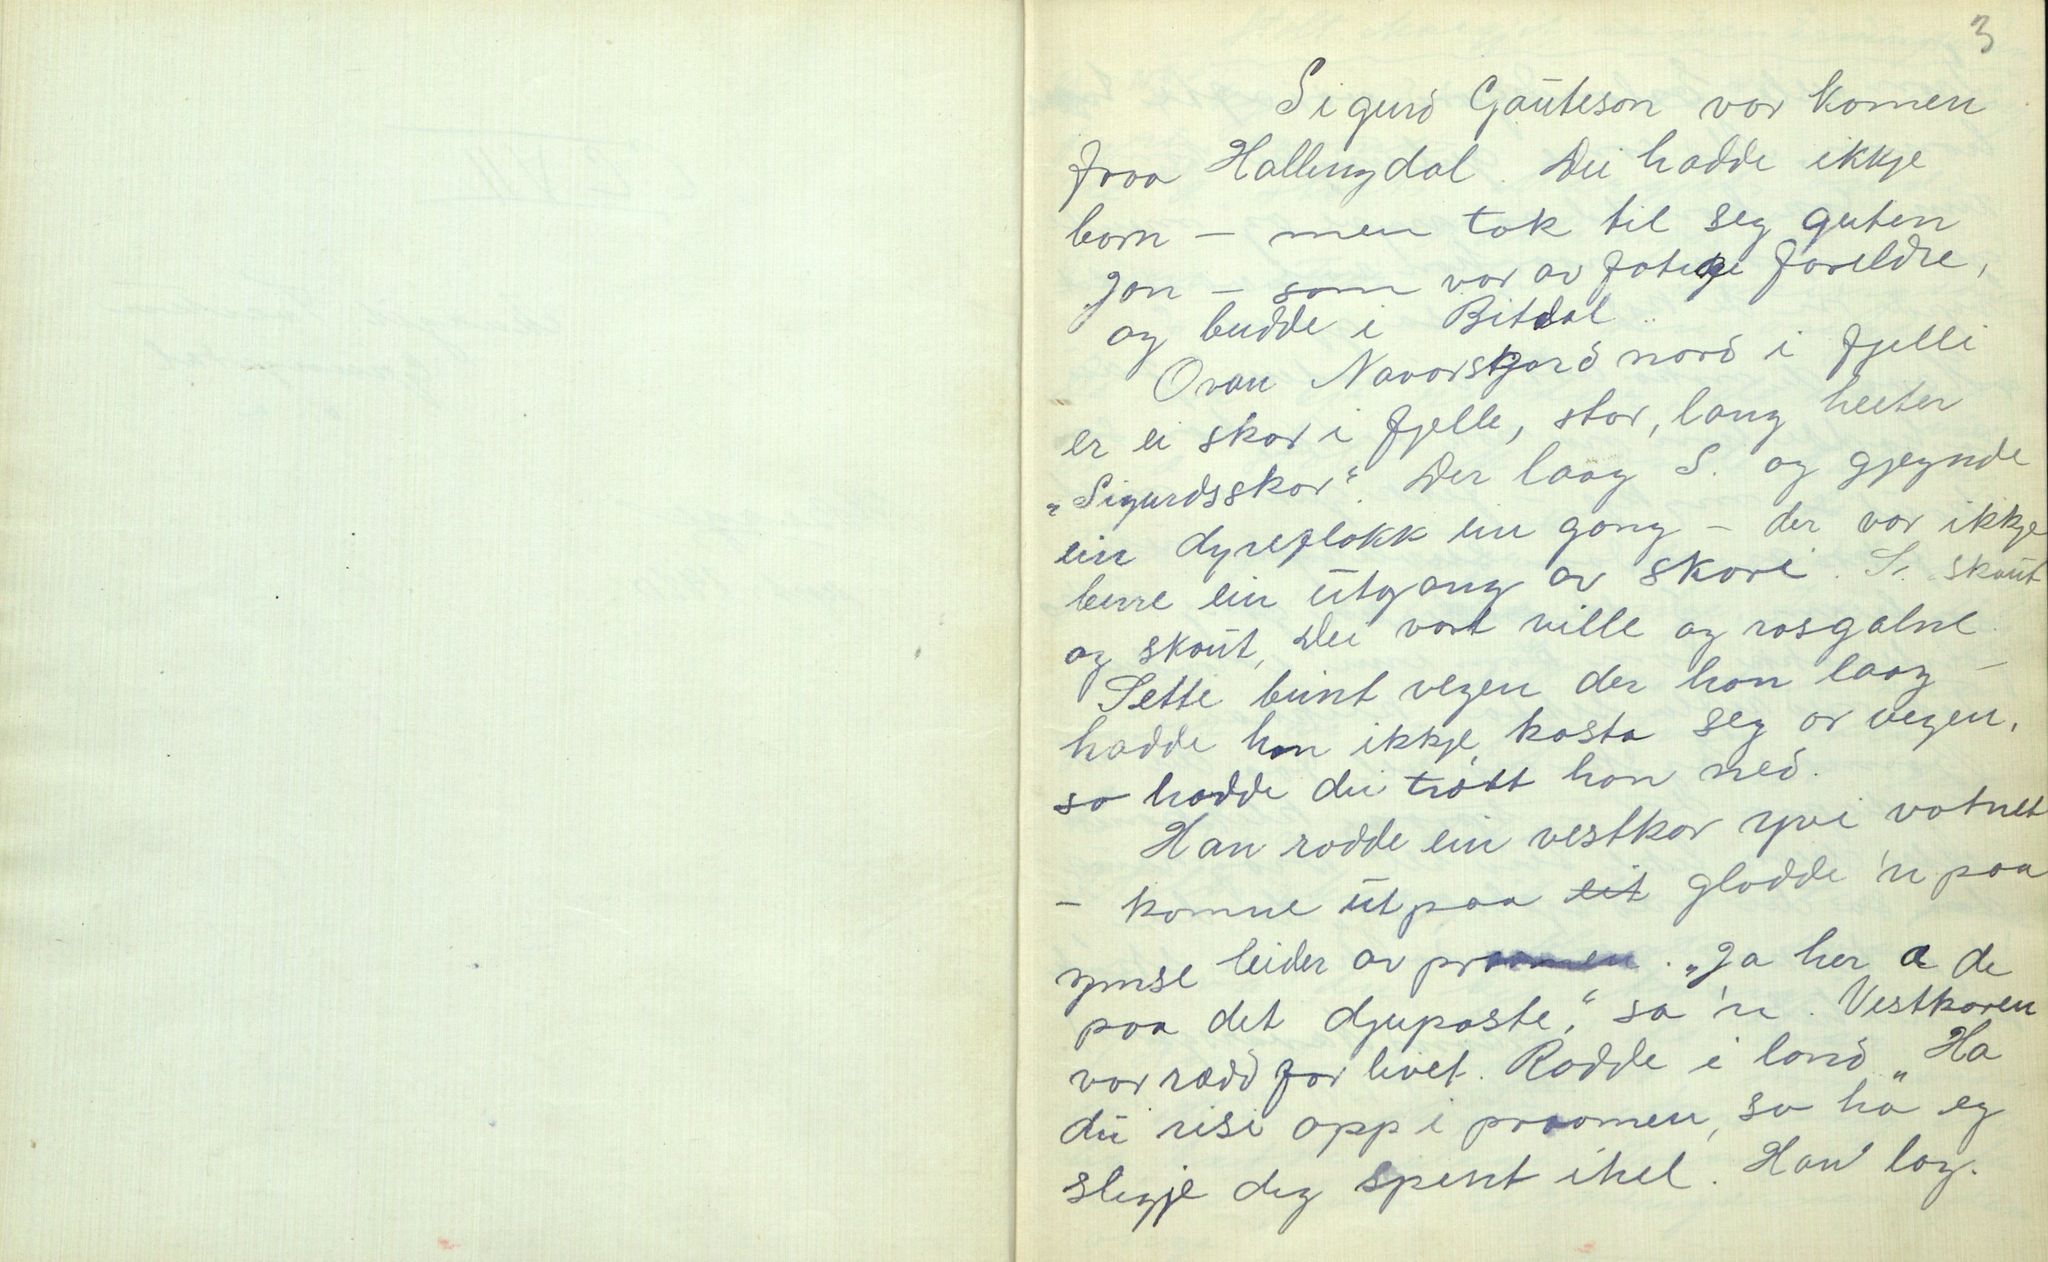 3
Sigurd Gauteson var komen
fraa Hallingdal. Dei hadde ikkje
born – men tok til seg guten
Jon – som var av fatige foreldre,
og budde i Bitdal.
Ovan Navarsgard nord i fjelli
er ei skor i fjelle, stor, lang heeter
„Sigurdsskor“. Der laag S. og gjeynde
ein dyreflokk ein gong – der var ikkje
berre ein utgang av skori. S. skaut
og skaut, Dei vart ville og rasgalne.
Sette beint vegen der han laag –
hadde han ikkje kasta seg or vegen,
so hadde dei trått han ned.
Han rodde ein vestkar yvi vatnet
– komne utpaa eit gladde 'n paa
ymse leider av praamen. „Ja her a de
paa det djupaste,“ sa 'n. Vestkaren
var rædd for livet. Rodde i land „Ha
du risi opp i praamen, so ha eg
slegje deg spent ihel. Han log.